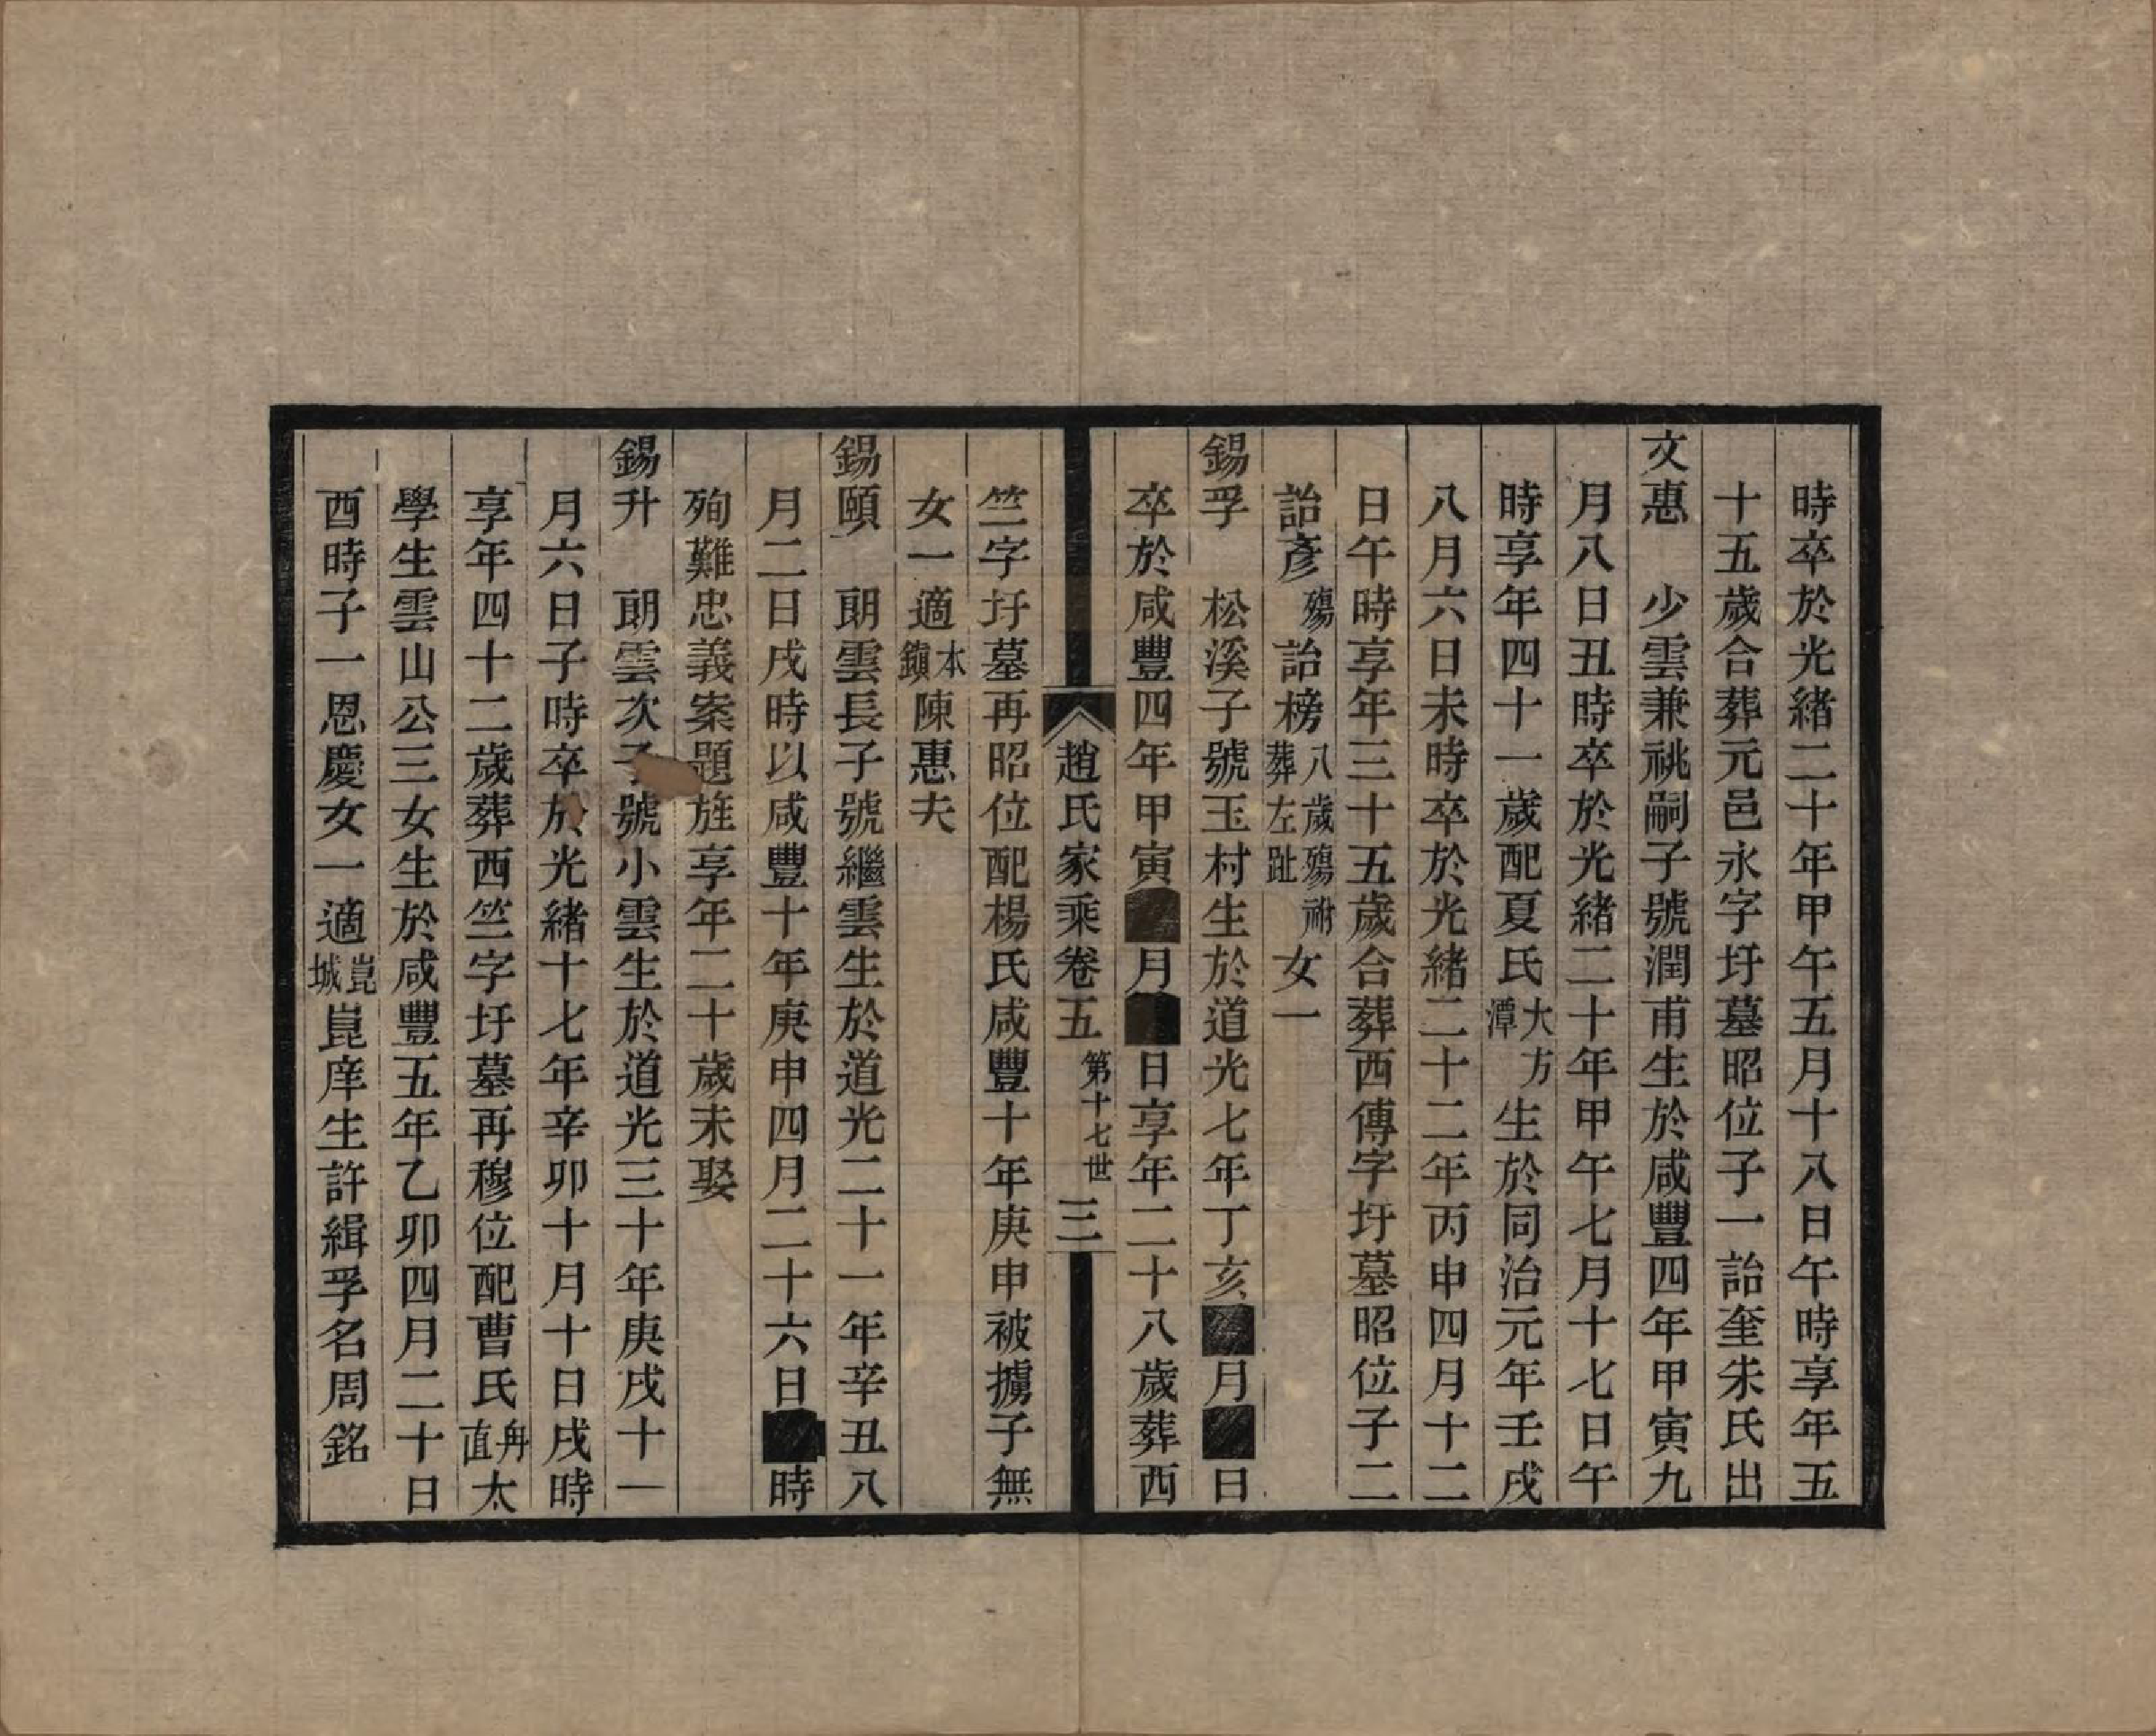 時卒於光緒二十年甲午五月十八日午時享年五
十五歲合葬元邑永字圩墓昭位子一詒奎朱氏出
文惠　少雲兼祧嗣子號潤甫生於咸豐四年甲寅九
月八日丑時卒於光緒二十年甲午七月十七日午
時享年四十一歲配夏氏大方潭生於同治元年壬戌
八月六日未時卒於光緒二十二年丙申四月十二
日午時享年三十五歲合葬西傅字圩墓昭位子二
詒彥殤詒榜八歲殤祔葬左趾女一
錫孚　松溪子號玉村生於道光七年丁亥■月■日
卒於咸豐四年甲寅■月■日享年二十八歲葬西
趙氏家乘卷五　第十七世　三
竺字圩墓再昭位配楊氏咸豐十年庚申被擄子無
女一適本鎮陳惠夫
錫頤　朗雲長子號繼雲生於道光二十一年辛丑八
月二日戌時以咸豐十年庚申四月二十六日■時
殉難忠義案題旌享年二十歲未娶
錫升　朗雲次子號小雲生於道光三十年庚戌十一
月六日子時卒於光緒十七年辛卯十月十日戌時
享年四十二歲葬西竺字圩墓再穆位配曹氏甪直太
學生雲山公三女生於咸豐五年乙卯四月二十日
酉時子一恩慶女一適崑城崑庠生許緝孚名周銘